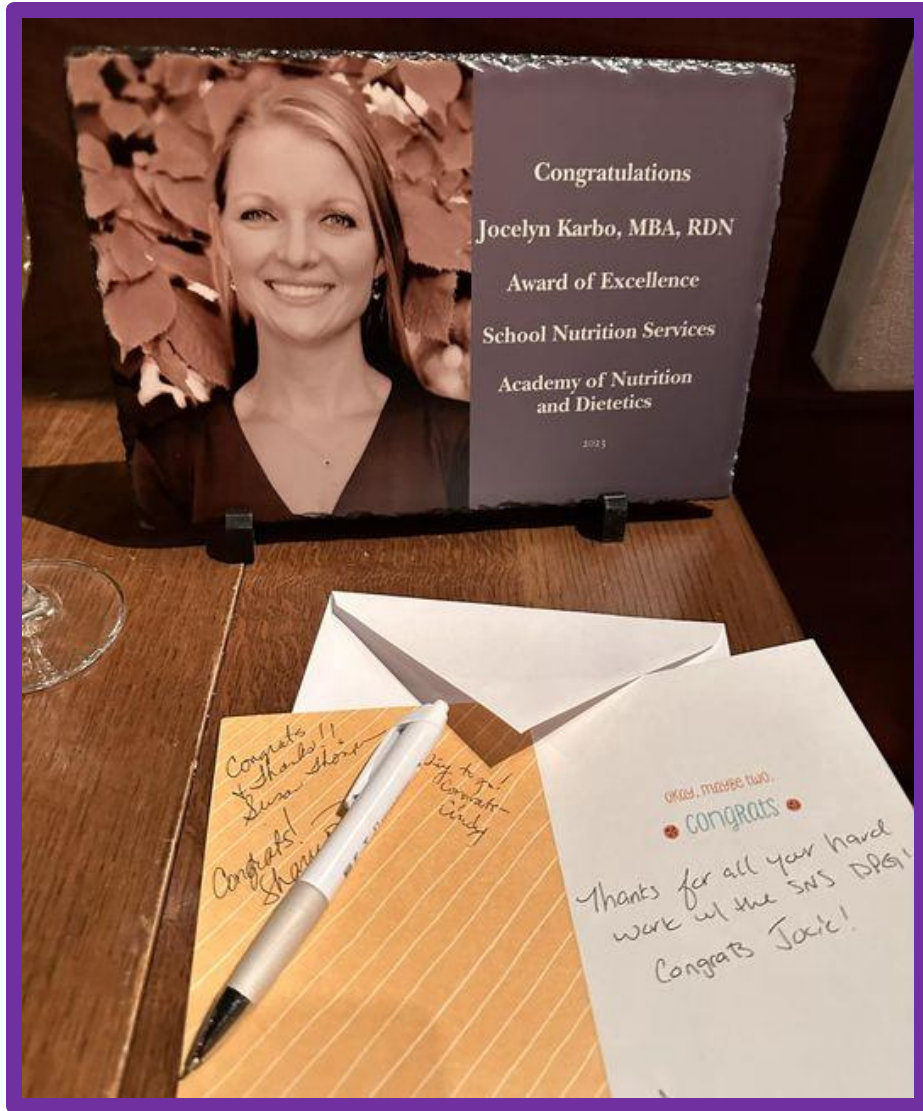 Congratulations
Jocelyn Karbo, MBA, RDN
Award of Excellence
School Nutrition Services
Academy of Nutrition
and Dietetics
2023
Congrats
& Thanks!!
Susan
Congrats!
way to go!
Congrats—
Cindy
OKAY, MAYBE TWO.
CONGRATS
Thanks for all your hard
work w/ the SNS DPG!
Congrats Jocie!